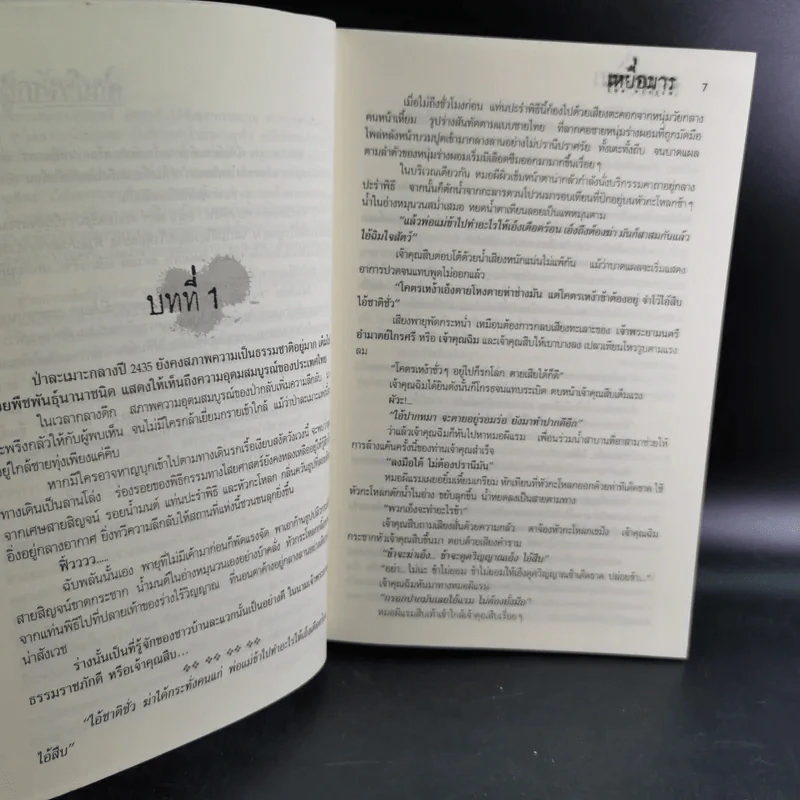 บทที่ 1
ป่าละเมาะกลางปี 2435 ยังคงสภาพความเป็นธรรมชาติอยู่มาก เต็มไป
วยพืชพันธุ์นานาชนิด แสดงให้เห็นถึงความอุดมสมบูรณ์ของประเทศไทย
ในเวลากลางดึก สภาพความอุดมสมบูรณ์ของป่ากลับเพิ่มความลึกลับ
ะพรึงกลัวให้กับผู้พบเห็น จนไม่มีใครกล้าเยี่ยมกรายเข้าใกล้ แม้ว่าป่าละเมาะ
อยู่ใกล้ชายทุ่งเพียงแค่คืบ
หากมีใครอาจหาญบุกเข้าไปตามทางเดินรกเรื้อเงียบสงัดวังเวงนี้ จะพบว่า
ทางเดินเป็นลานโล่ง ร่องรอยของพิธีกรรมทางไสยศาสตร์ยังคงหลงเหลืออยู่
จากเศษสายสิญจน์ รอยน้ำมนต์ แท่นประรำพิธี และหัวกะโหลก กลิ่นควันธูป
อิ่งอยู่กลางอากาศ ยิ่งทวีความลึกลับให้สถานที่แห่งนี้ชวนขนลุกยิ่งขึ้น
ฟิ้วววว.....
ฉับพลันนั้นเอง พายุที่ไม่มีเค้ามาก่อนก็พัดแรงจัด พาเอาก้านธูป
สายสิญจน์ขาดกระชาก น้ำมนต์ในอ่างหมุนวนเองอย่างบ้าคลั่ง หัวกะโหลก
จากแท่นพิธีไปที่ปลายเท้าของร่างไร้วิญญาณ ที่นอนตาค้างอยู่กลางลานอย่าง
น่าสังเวช
ร่างนั้นเป็นที่รู้จักของชาวบ้านละแวกนั้นเป็นอย่างดี ในนามเจ้าพระยา
ธรรมราชภักดี หรือเจ้าคุณสืบ...
“ไอ้ชาติชั่ว ฆ่าได้กระทั่งคนแก่ พ่อแม่ข้าไปทำอะไรให้เอ็งเดือดร้อน
ไอ้สืบ”
เหยื่อมาร 7
เมื่อไม่ถึงชั่วโมงก่อน แท่นประรำพิธีนี้ก้องไปด้วยเสียงตะคอกจากหนุ่มวัยกลาง
คนหน้าเหี้ยม รูปร่างสันทัดตามแบบชายไทย ที่ลากคอชายหนุ่มร่างผอมที่ถูกมัดมือ
ไพล่หลังหน้าบวมปูดเข้ามากลางลานอย่างไม่ปรานีปราศรัย ทั้งเตะทั้งถีบ จนบาดแผล
ตามลำตัวของหนุ่มร่างผอมเริ่มมีเลือดซึมออกมามากขึ้นเรื่อยๆ
ในบริเวณเดียวกัน หมอผีผิวเข้มหน้าตาน่ากลัวกำลังนั่งบริกรรมคาถาอยู่กลาง
ปะรำพิธี จากนั้นก็ตักน้ำจากกะลารดวนไปวนมารอบเทียนที่ปักอยู่บนหัวกะโหลกช้าๆ
น้ำในอ่างหมุนวนสม่ำเสมอ หยดน้ำตาเทียนลอยเป็นแพหมุนตาม
“แล้วพ่อแม่ข้าไปทำอะไรให้เอ็งเดือดร้อน เอ็งถึงต้องฆ่า มันก็สาสมกันแล้ว
ไอ้ฉิมใจสัตว์”
เจ้าคุณสืบตอบโต้ด้วยน้ำเสียงหนักแน่นไม่แพ้กัน แม้ว่าบาดแผลจะเริ่มแสดง
อาการปวดจนแทบพูดไม่ออกแล้ว
“โคตรเหง้าเอ็งตายโหงตายห่าช่างมัน แต่โคตรเหง้าข้าต้องอยู่ จำไว้ไอ้สืบ
ไอ้ชาติชั่ว”
เสียงพายุพัดกระหน่ำ เหมือนต้องการกลบเสียงทะเลาะของ เจ้าพระยามนตรี
อำมาตย์ไกรศรี หรือ เจ้าคุณฉิม และเจ้าคุณสืบให้เบาบางลง เปลวเทียนไหววูบตามแรง
ลม
“โคตรเหง้าชั่วๆ อยู่ไปก็รกโลก ตายเสียได้ก็ดี”
เจ้าคุณฉิมได้ยินดังนั้นก็โกรธจนแทบระเบิด ตบหน้าเจ้าคุณสืบเต็มแรง
ผัวะ!..
“ไอ้ปากหมา จะตายอยู่รอมร่อ ยังมาทำปากดีอีก”
ว่าแล้วเจ้าคุณฉิมก็หันไปหาหมอผีแรม เพื่อนร่วมน้ำสาบานที่อาสามาช่วยให้
การล้างแค้นครั้งนี้ของท่านเจ้าคุณสำเร็จ
“ลงมือได้ ไม่ต้องปรานีมัน”
หมอผีแรมเผยอยิ้มเหี้ยมเกรียม หักเทียนที่หัวกะโหลกออกด้วยท่าทีเด็ดขาด ใช้
หัวกะโหลกตักน้ำในอ่าง ขยับลุกขึ้น น้ำหยดลงเป็นสายตามทาง
“พวกเอ็งจะทำอะไรข้า”
เจ้าคุณสืบถามเสียงสั่นด้วยความกลัว ตาจ้องหัวกะโหลกเขม็ง เจ้าคุณฉิม
กระชากหัวเจ้าคุณสืบขึ้นมา ตอบด้วยเสียงคำราม
“ข้าจะฆ่าเอ็ง.. ข้าจะดูดวิญญาณเอ็ง ไอ้สืบ”
“อย่า.. ไม่นะ ข้าไม่ยอม ข้าไม่ยอมให้เอ็งดูดวิญญาณข้าเด็ดขาด ปล่อยข้า...”
เจ้าคุณฉิมหันมาทางหมอผีแรม
“กรอกปากมันเลยไอ้แรม ไม่ต้องยั้งมือ”
หมอผีแรมสืบเท้าเข้าใกล้เจ้าคุณสืบเรื่อยๆ